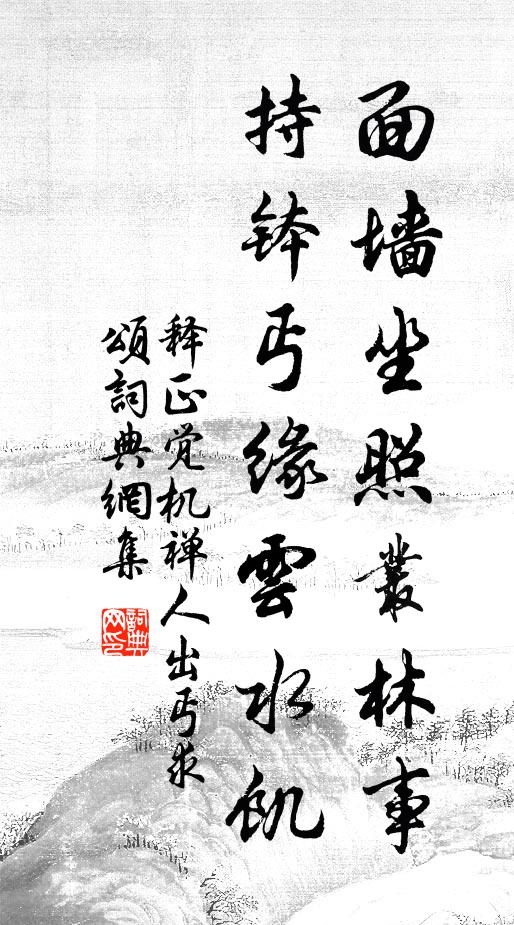 面墙坐照叢林事
持钵丐缘雲水飢
释正觉机禅人出丐求
頌詞典網集
詞典網印